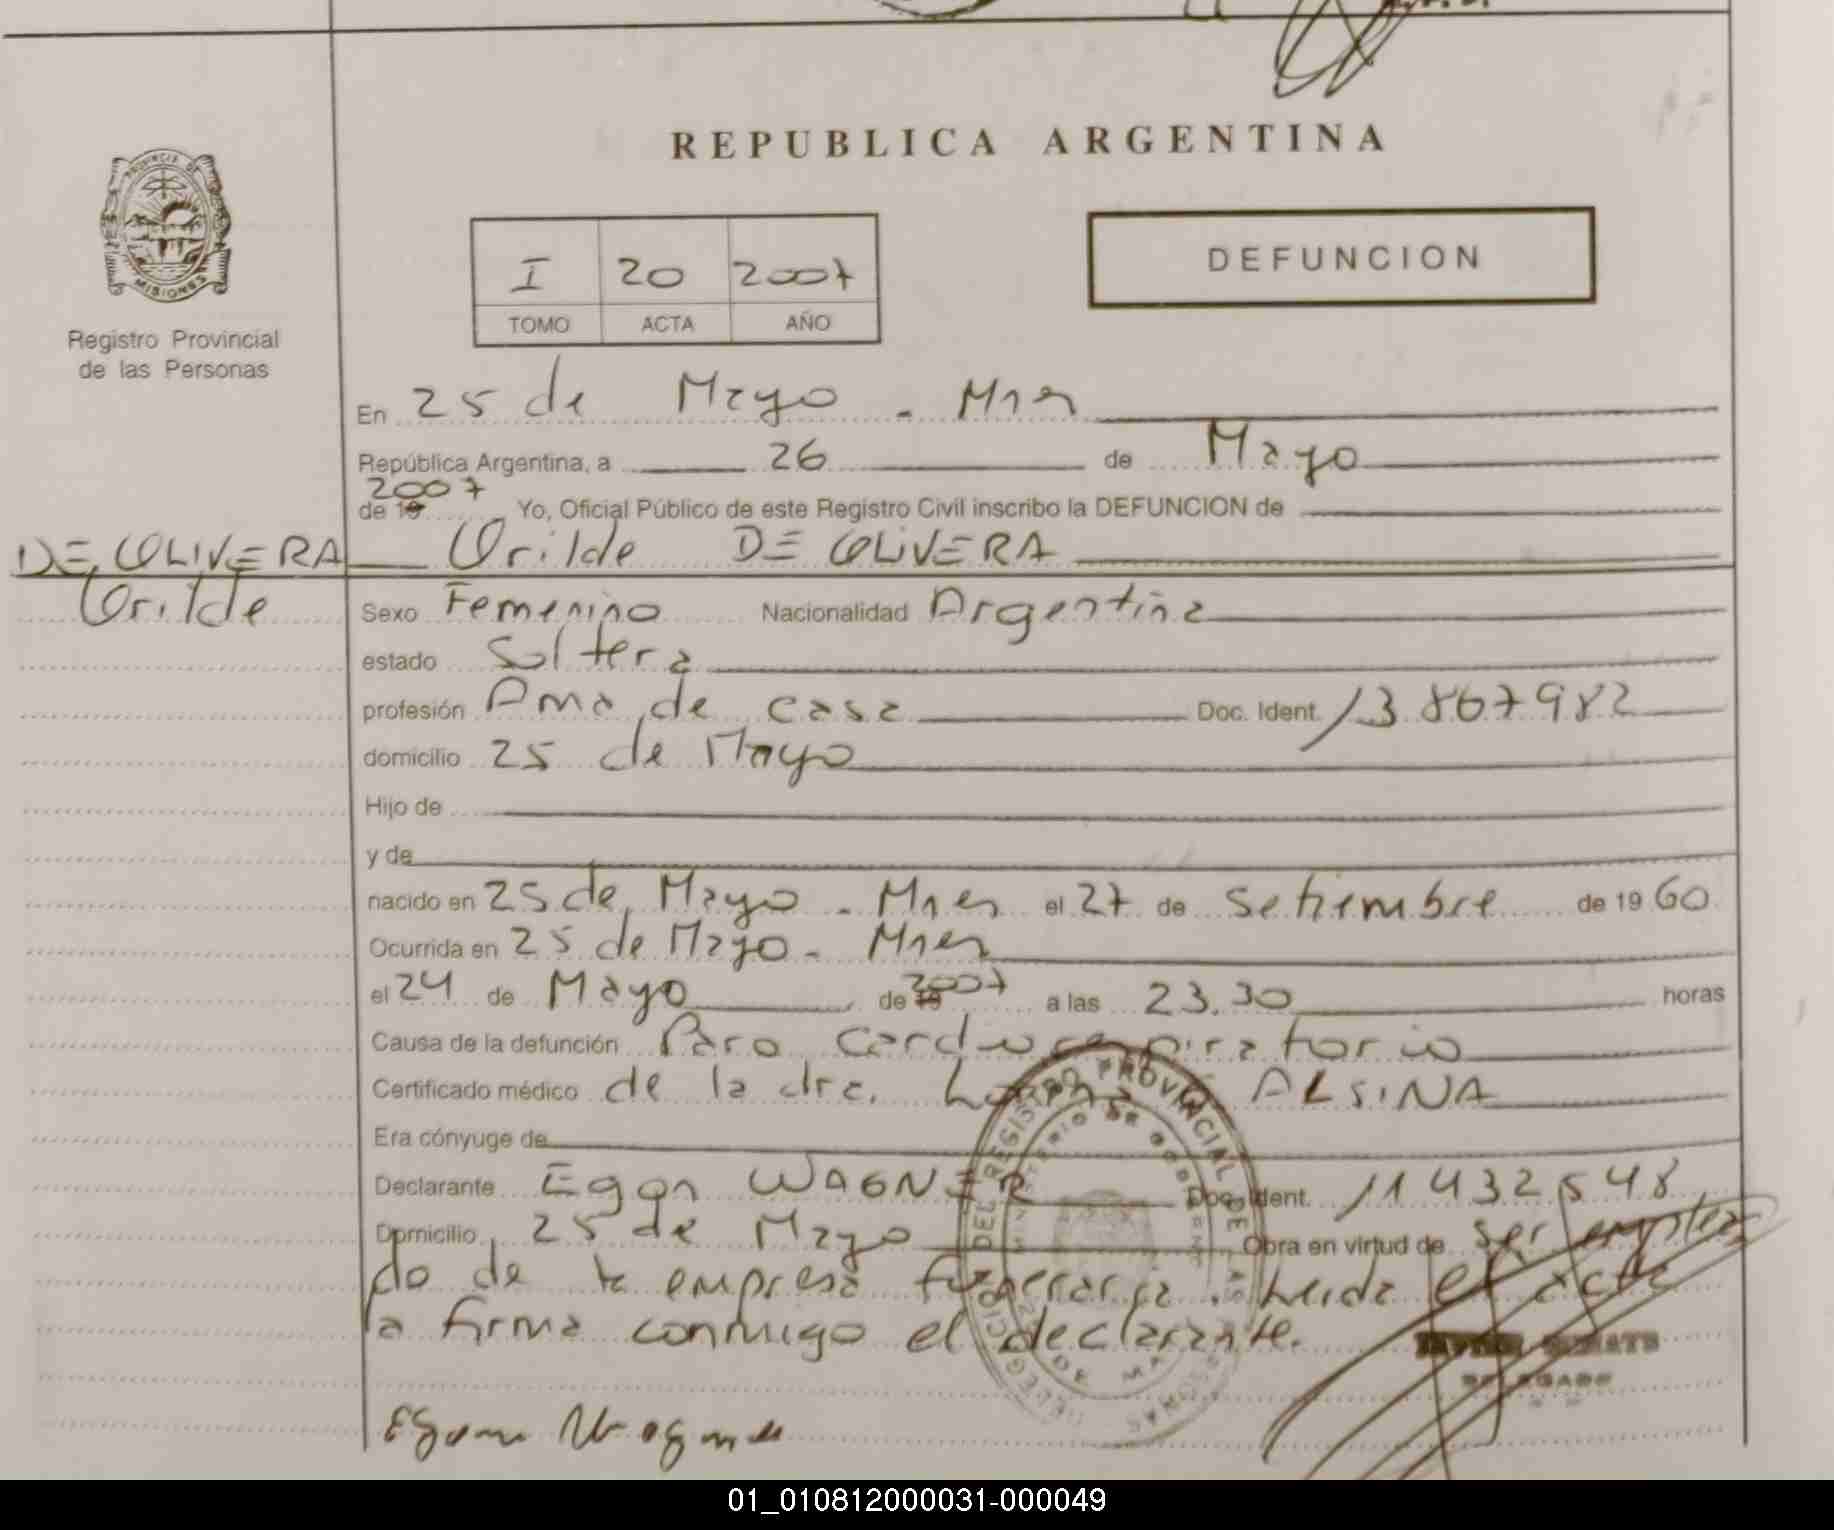 REPUBLICA ARGENTINA
PROVINCIA DE
MISIONES
Registro Provincial
de las Personas
I 20 2007
TOMO ACTA AÑO
DEFUNCION
En 25 de Mayo - Mnes
República Argentina, a 26 de Mayo
2007
de 19 Yo, Oficial Público de este Registro Civil inscribo la DEFUNCION de
DE OLIVERA Orilde DE OLIVERA
Orilde Sexo Femenino Nacionalidad Argentina
estado Soltera
profesión Ama de casa Doc. Ident. 13867982
domicilio 25 de Mayo
Hijo de
y de
nacido en 25 de Mayo - Mnes el 27 de Setiembre de 1960
Ocurrida en 25 de Mayo - Mnes
el 24 de Mayo de 19 2007 a las 23,30 horas
Causa de la defunción Paro Cardiorespiratorio
Certificado médico de la dra. ALSINA
Era cónyuge de
Declarante Egon WAGNER Doc. Ident. 11432548
Domicilio 25 de Mayo Obra en virtud de ser emplea
do de la empresa funeraria. Leida el acta
la firma conmigo el declarante.
DELEGADO
Egon Wagner
01_010812000031-000049